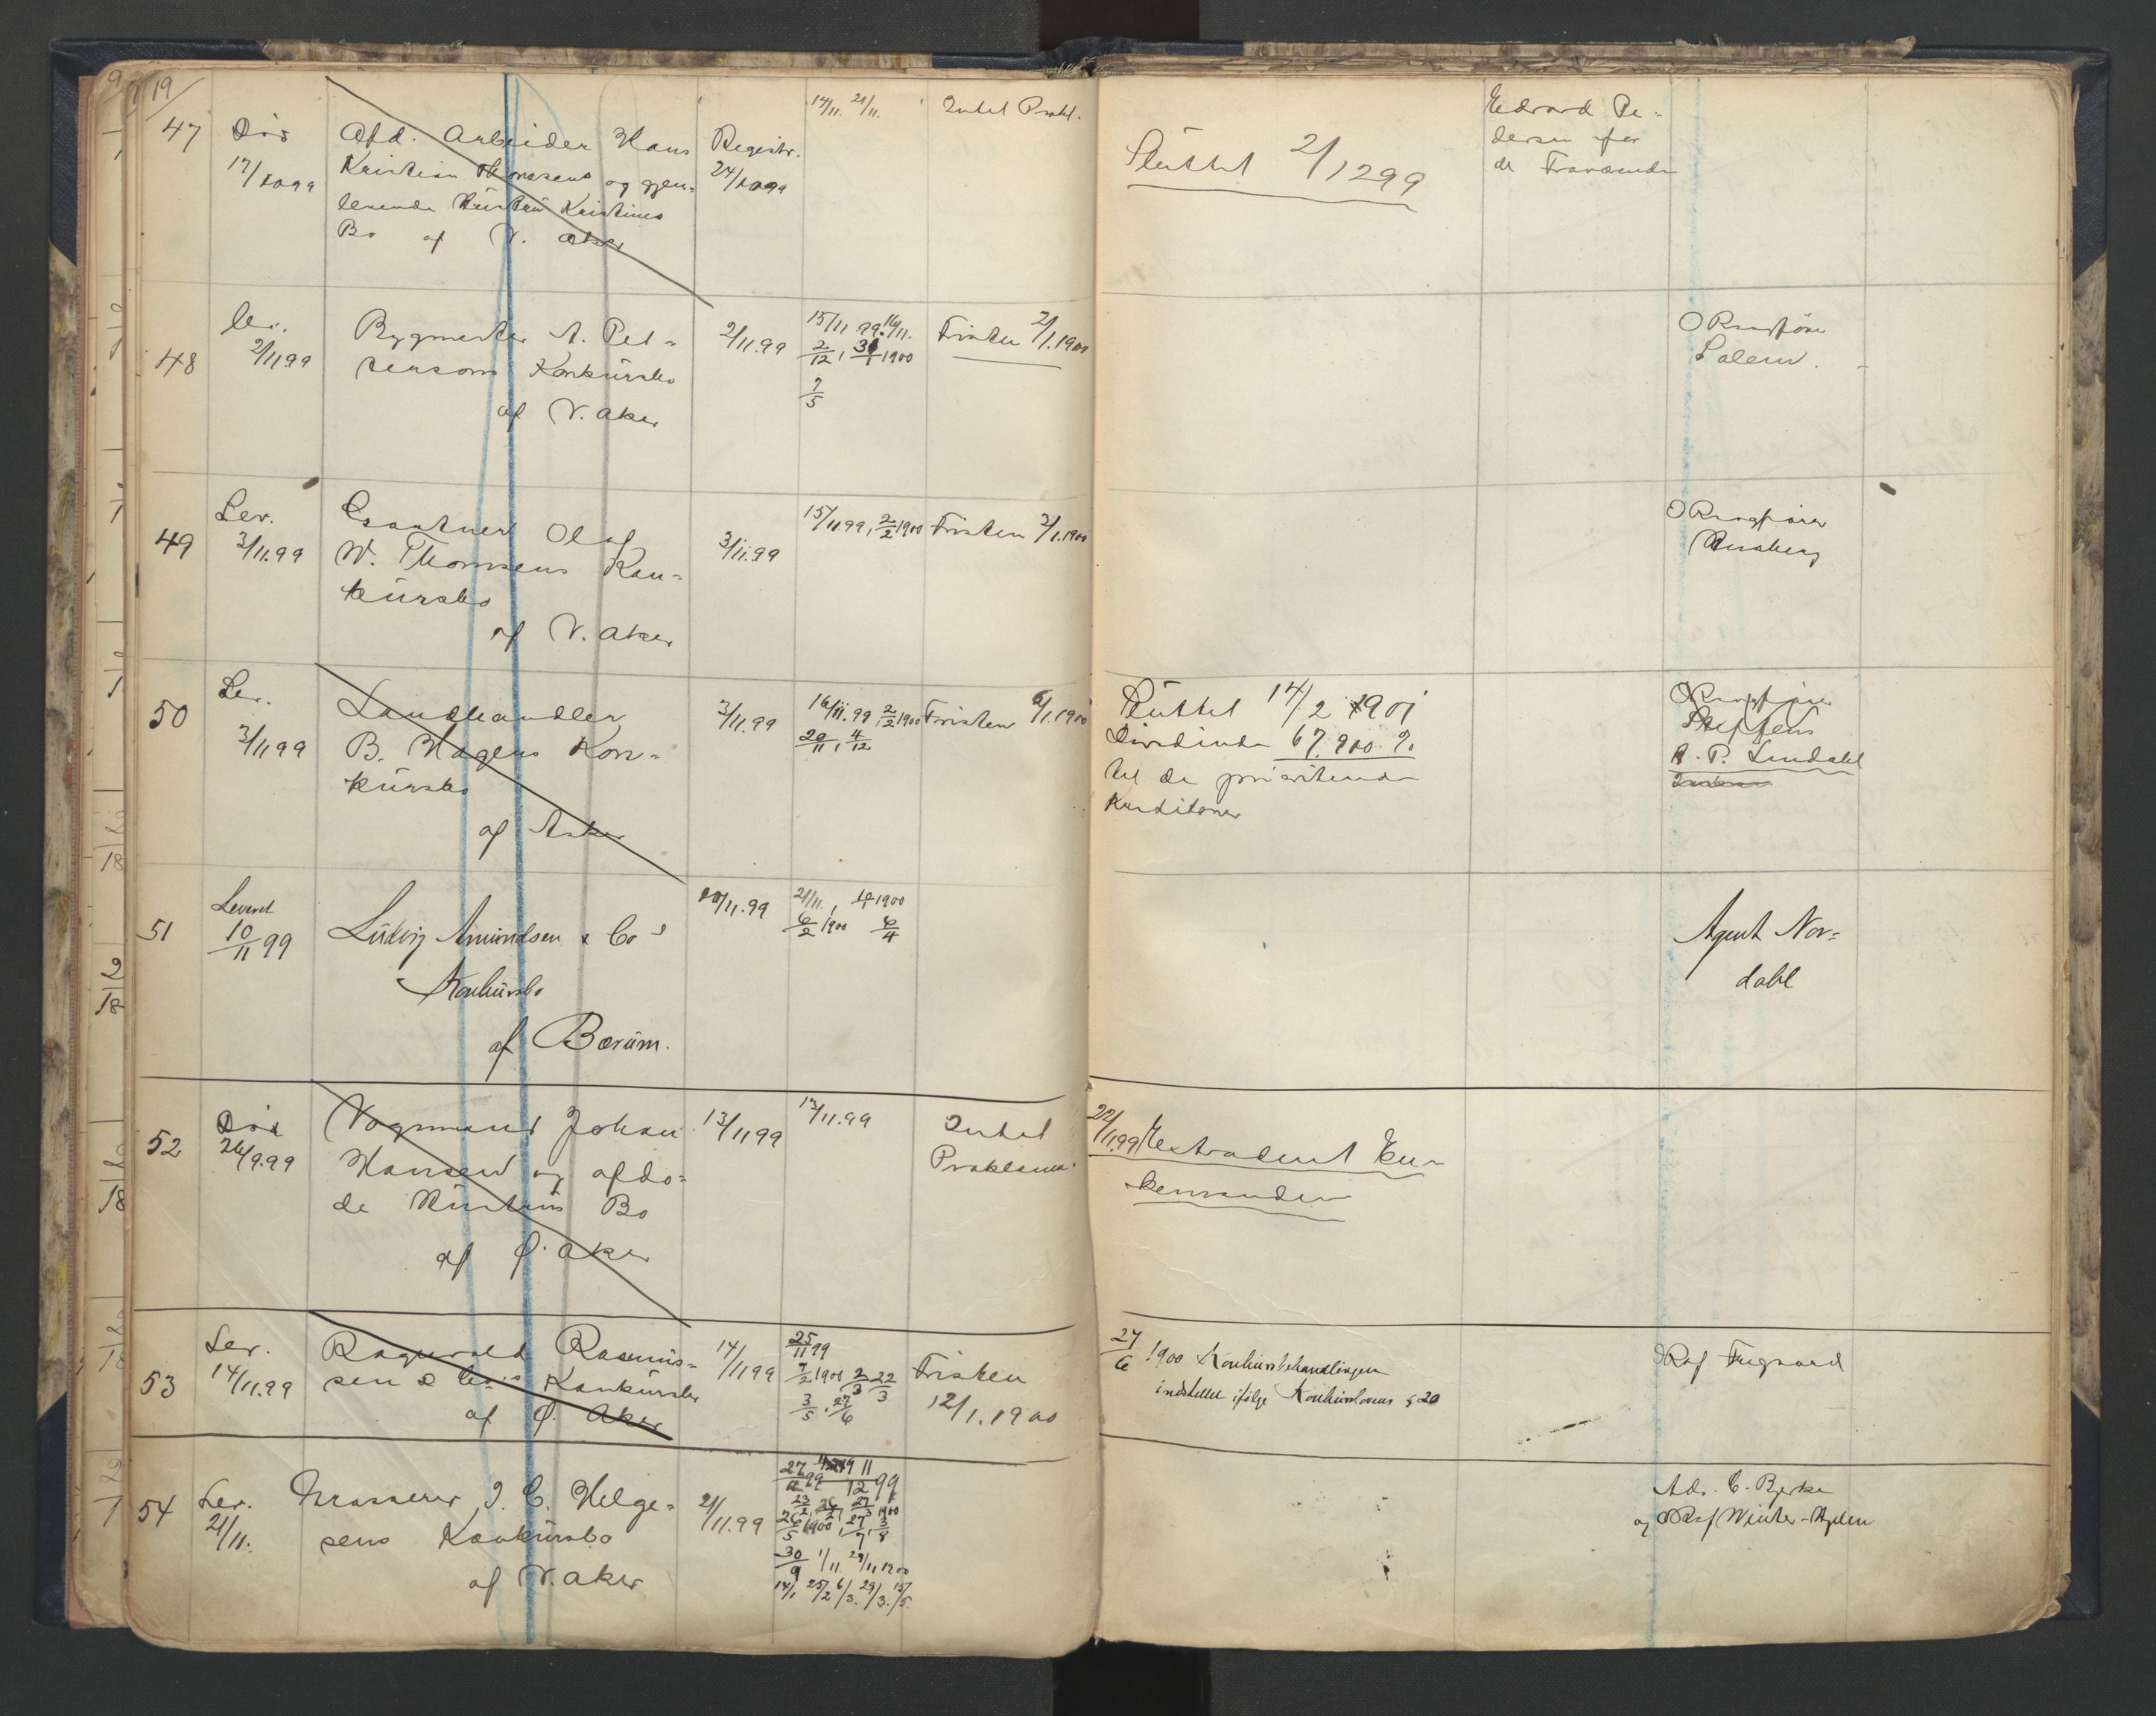 19
47
Död
17/10 99
Afd. Arbeider Hans
Kristian Thomsens og gjen-
levende Hustru Kristines
Bo af V. Aker
Registr.
24/10 99
14/11. 21/11.
Intet Prokl.
Sluttet 2/12 99
Edvard Pe-
dersen for
de Fraværende
48
Lev.
2/11 99
Bygmester A. Pet-
tersons Konkursbo
af V. Aker
2/11.99
15/11 99. 16/11.
2/12, 31/1 1900
7/5
Fristen 2/1.1900
Sagfører
Salem.
49
Lev.
3/11.99
Olaf
W. Thomsens Kon-
kursbo
af V. Aker
3/11.99
15/11 99, 2/2 1900
Fristen 3/1.1900
Sagfører
50
Lev.
3/11 99
Landhandler
B. Hagens Kon-
kursbo
af Asker
3/11.99
16/11.99, 2/2 1900
20/11, 4/12
Fristen 6/1.1900
Sluttet 14/2 1901
Dividende 67.900 %
til de prioriterede
Kreditorer
Steffens
A. P. Lindahl
51
Leveret
10/11 99
Ludvig Amundsen & Co s
Konkursbo
af Bærum.
10/11.99
21/11.
6/2 1900 6/4
Agent Nor-
dahl
52
Död
26/9.99
Vognmand Johan
Hansen og afdö-
de Hustrus Bo
af Ø. Aker
13/11 99
13/11.99
Intet
Proklama
22/11.99 Extraderet En-
kemanden
53
Lev.
14/11.99
Ragnvald Rasmus-
sen & Co's Konkursbo
af Ø. Aker
14/11 99
25/11 99
7/2 1900 2/3 22/3
3/5, 27/6
Fristen
12/1.1900
27/6 1900 Konkursbehandlingen
indstillet ifølge Konkurslovens § 20
54
Lev.
21/11.
Grosserer J. C. Helge-
sens Konkursbo
af V. Aker
21/11.99
30/9 1/11 29/11 1900
14/1 25/2 6/3. 29/3. 15/5.
Adv. C. Bjerke
og Winter-Hjelm